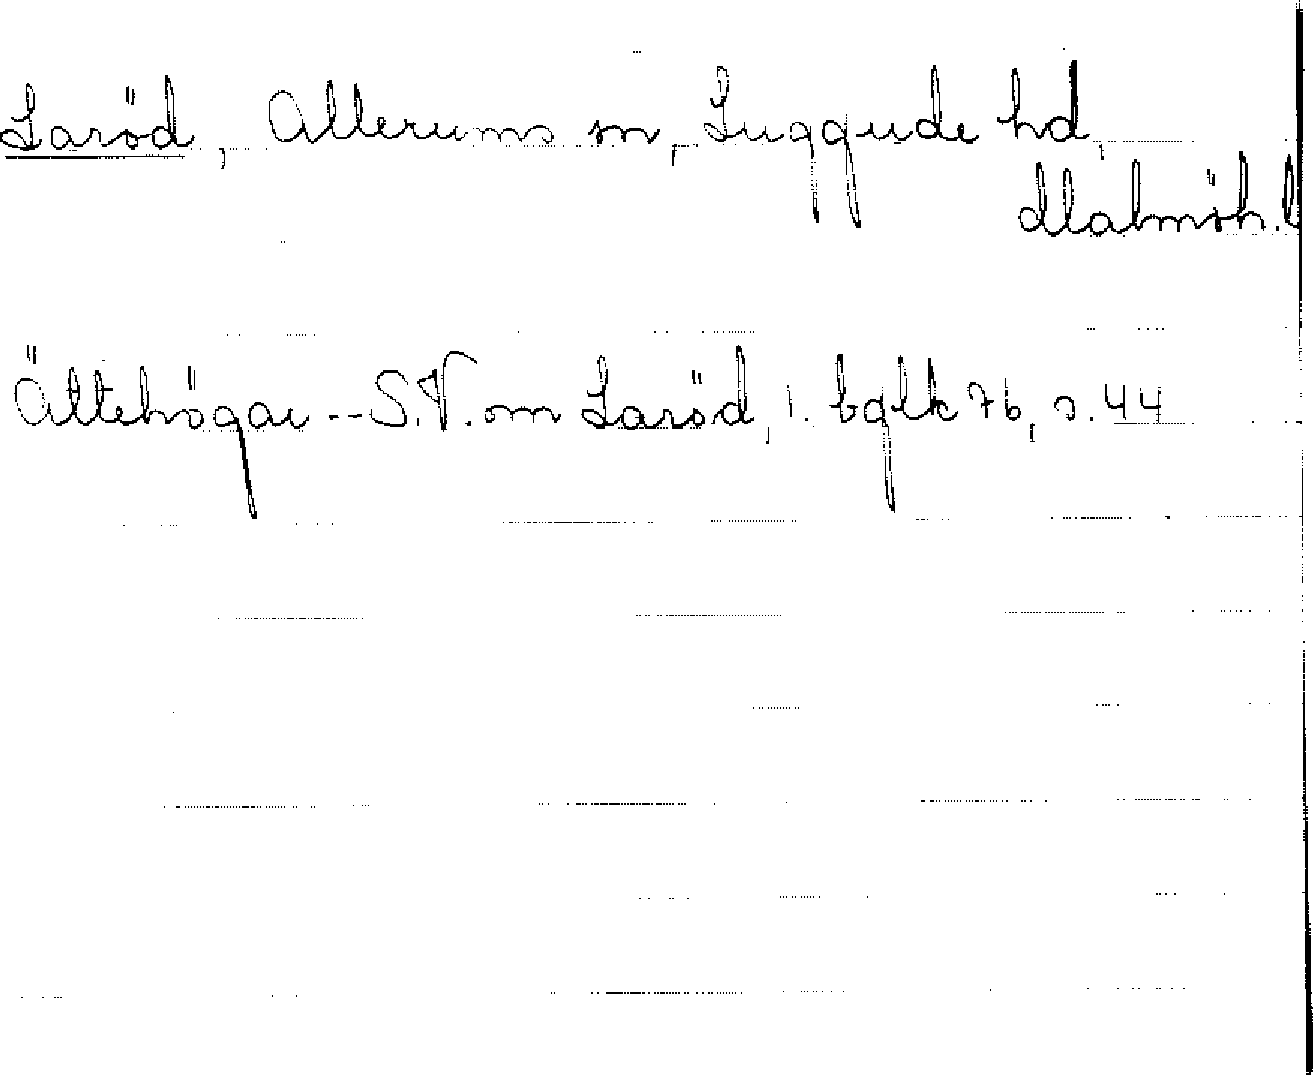 Laröd, Allerums sn, Luggude hd,
Malmöh. l
Ättehögar -- S.V. om Laröd, 1. bglk 76, s. 44